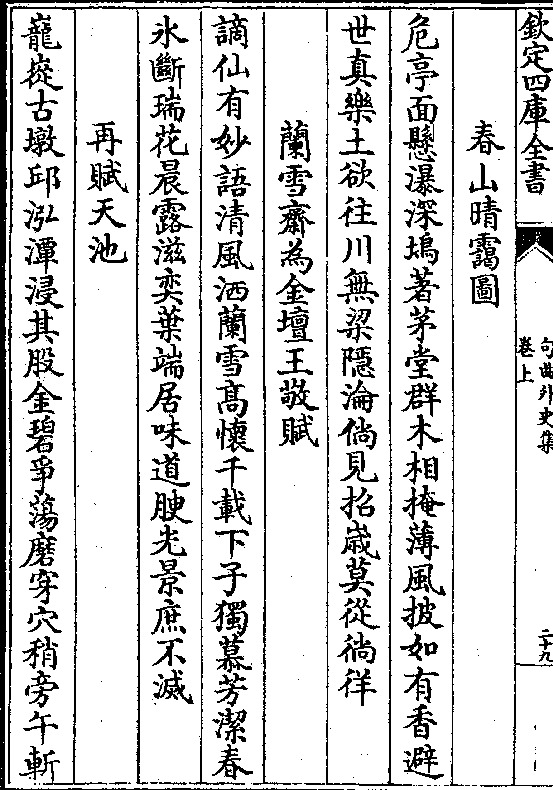 欽定四庫全書
句曲外史集
卷上
二十九
春山晴靄圖
危亭面懸瀑深塢著茅堂群木相掩薄風披如有香避
世真樂土欲往川無梁隱淪倘見招歲莫從徜徉
蘭雪齋為金壇王敬賦
謫仙有妙語清風洒蘭雪高懷千載下子獨慕芳潔春
氷斷瑞花晨露滋奕葉端居味道腴光景庶不滅
再賦天池
巃嵷古墩邱泓潭浸其股金碧爭蕩磨穿穴稍旁午斬